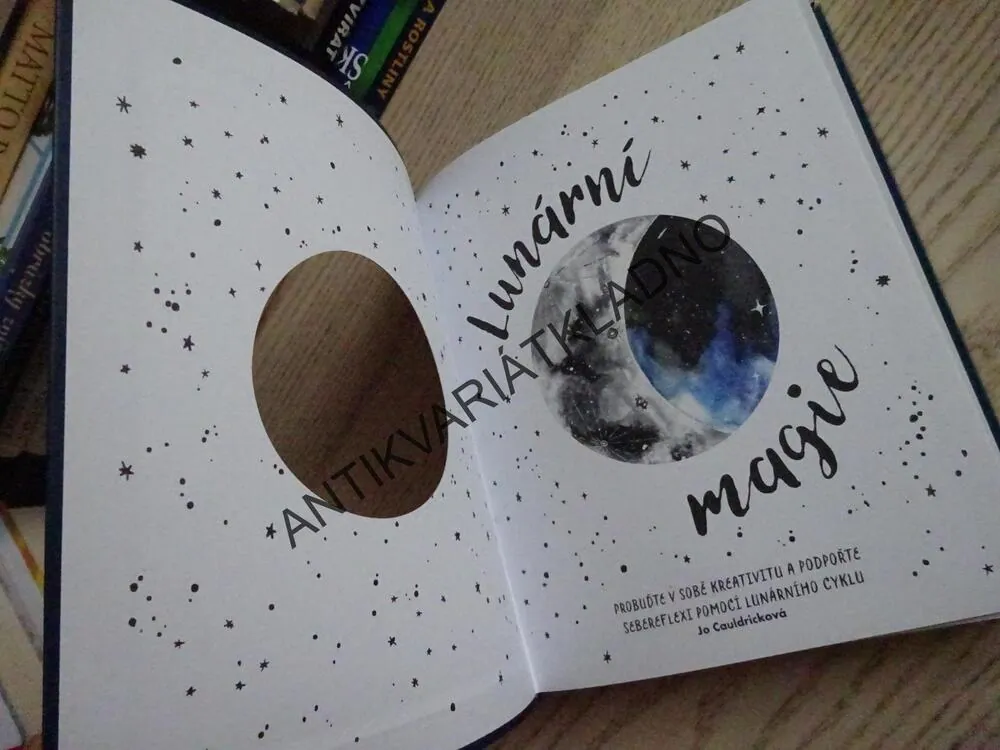 MATTO
obrázky
ZVÍŘAT
A ROSTLINY
Lunární
magie
PROBUĎTE V SOBĚ KREATIVITU A PODPOŘTE
SEBEREFLEXI POMOCÍ LUNÁRNÍHO CYKLU
Jo Cauldricková
ANTIKVARIÁTKLADNO